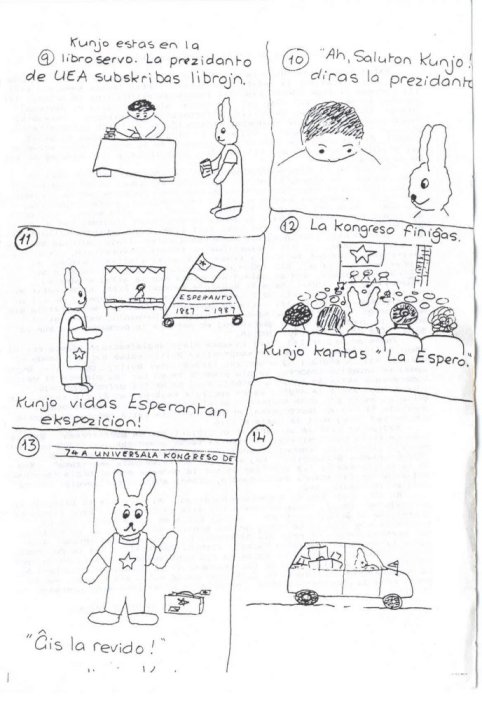 9 Kunjo estas en la
libroservo. La prezidanto
de UEA subskribas librojn.
10 "Ah, Saluton Kunjo!
diras la prezidant
11
ESPERANTO
1987 - 1987
Kunjo vidas Esperantan
ekspozicion!
12 La kongreso finiĝas.
Kunjo kantas "La Espero."
13
74A UNIVERSALA KONGRESO DE
"Ĝis la revido!"
14